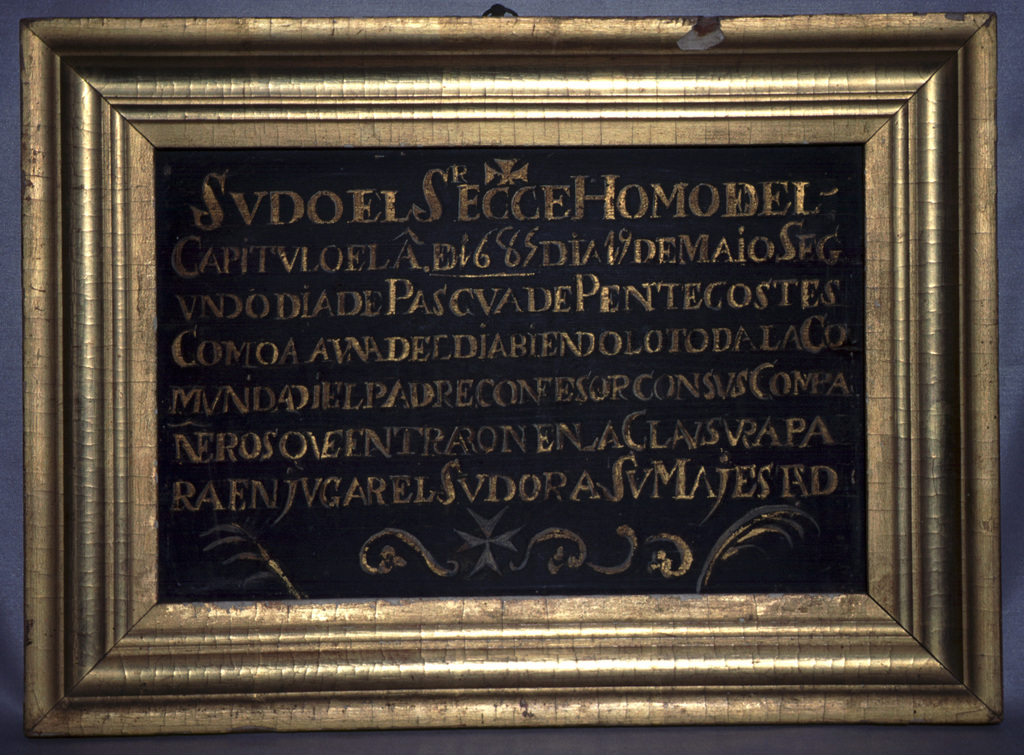 SUDO EL Sr ECCE HOMO DEL
CAPITVLO EL Â. D 1685 DIA 19 DE MAIO. SEG
VNDO DIA DE PASCVA DE PENTECOSTES
COMO A A VNA DEL DIA BIENDOLO TODA LA CO
MVNIDAD I EL PADRE CONFESOR CON SUS COMPA
ÑEROS QVE ENTRARON EN LA CLAVSVRA PA
RA ENJVGAR EL SVDOR A SV MAJESTAD